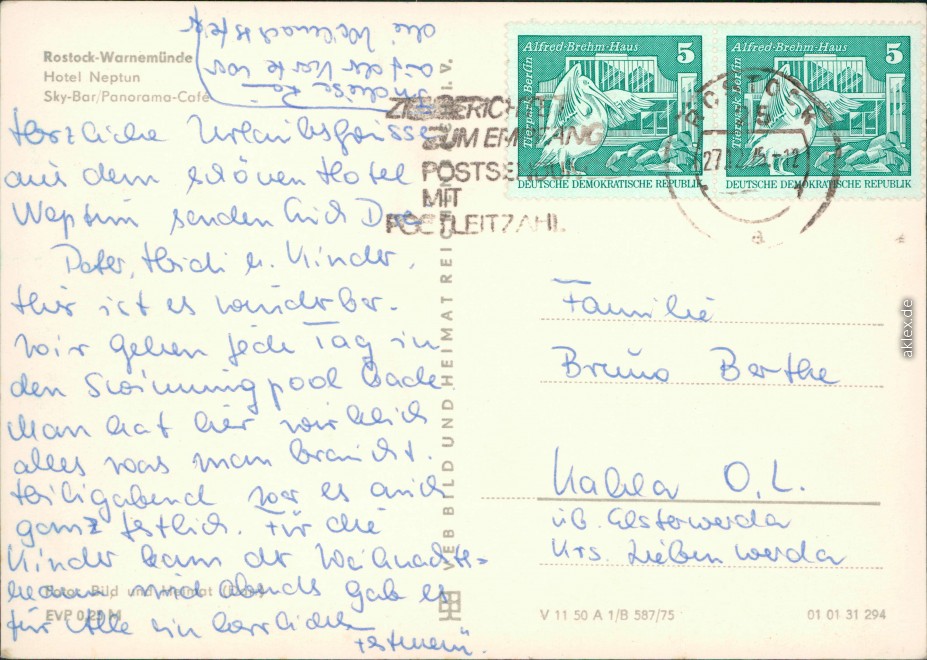 Rostock-Warnemünde
Hotel Neptun
Sky-Bar/Panorama-Café
Herzliche Urlaubsgrüsse
aus dem schönen Hotel
Neptun senden Euch
Peter, Heidi u. Kinder.
Hier ist es wunderbar.
Wir gehen jede Tag in
den Swimmingpool bade
Man hat hier wirklich
alles was man braucht.
Heiligabend war es auch
ganz festlich. Für die
Kinder kam der Weihnachts=
mann und abends gab es
für Alle ein herrliches
Festmenü.
auf der Karte war
die Weihnachtsfeier
Foto: Bild und Heimat
EVP 0,25 M
VEB BILD UND HEIMAT REICHENBACH I. V.
ZIELGERICHTET
ZUM EMPFANG
POSTSENDUNG
MIT
POSTLEITZAHL
Alfred-Brehm-Haus 5
Tierpark Berlin
DEUTSCHE DEMOKRATISCHE REPUBLIK
Alfred-Brehm-Haus 5
Tierpark Berlin
DEUTSCHE DEMOKRATISCHE REPUBLIK
ROSTOCK
25
27.12.75-12
a
Familie
Bruno Berthe
Kahla O.L.
üb. Elsterwerda
Krs. Liebenwerda
V 11 50 A 1/B 587/75
01 01 31 294
aklex.de